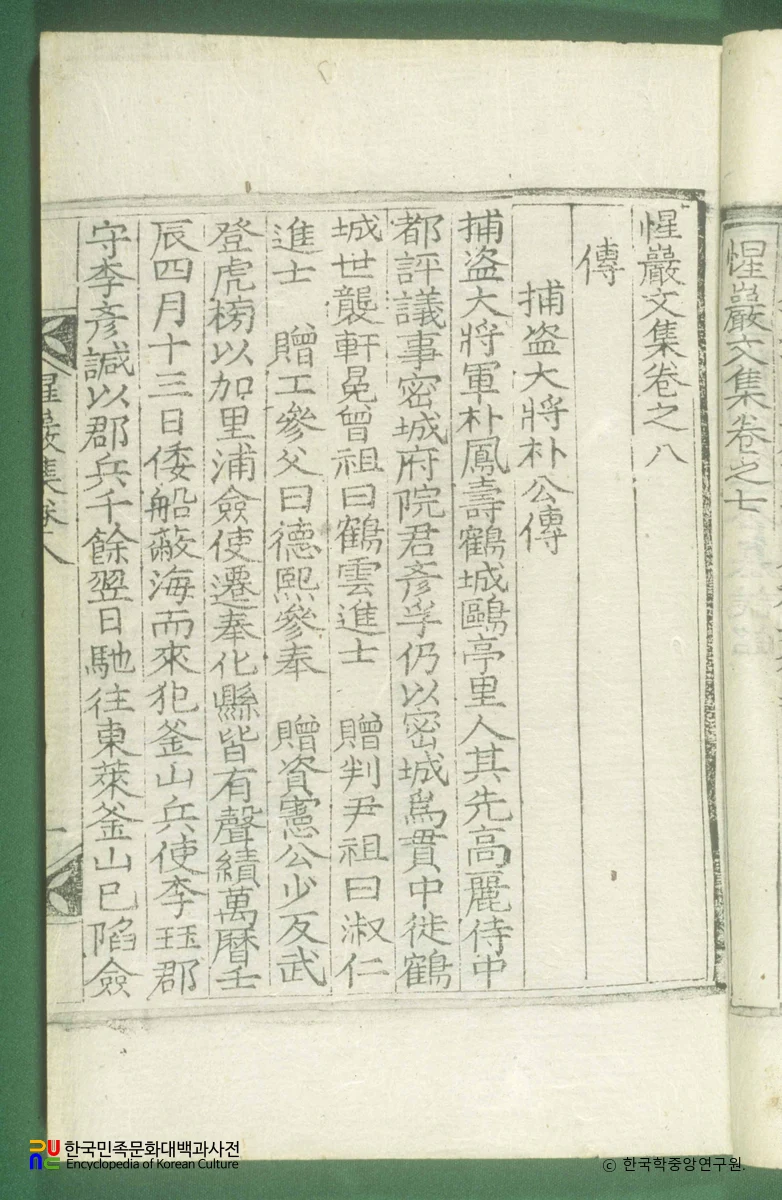 惺巖文集卷之七
惺巖文集卷之八
傳
捕盜大將朴公傳
捕盜大將軍朴鳳壽鶴城鷗亭里人其先高麗侍中
都評議事密城府院君彥孚仍以密城爲貫中徙鶴
城世襲軒冕曾祖曰鶴雲進士 贈判尹祖曰淑仁
進士 贈工參父曰德熙參奉 贈資憲公少反武
登虎榜以加里浦僉使遷奉化縣皆有聲績萬曆壬
辰四月十三日倭船蔽海而來犯釜山兵使李珏郡
守李彥諴以郡兵千餘翌日馳往東萊釜山已陷僉
惺巖集卷八
一
한국민족문화대백과사전
Encyclopedia of Korean Culture
© 한국학중앙연구원